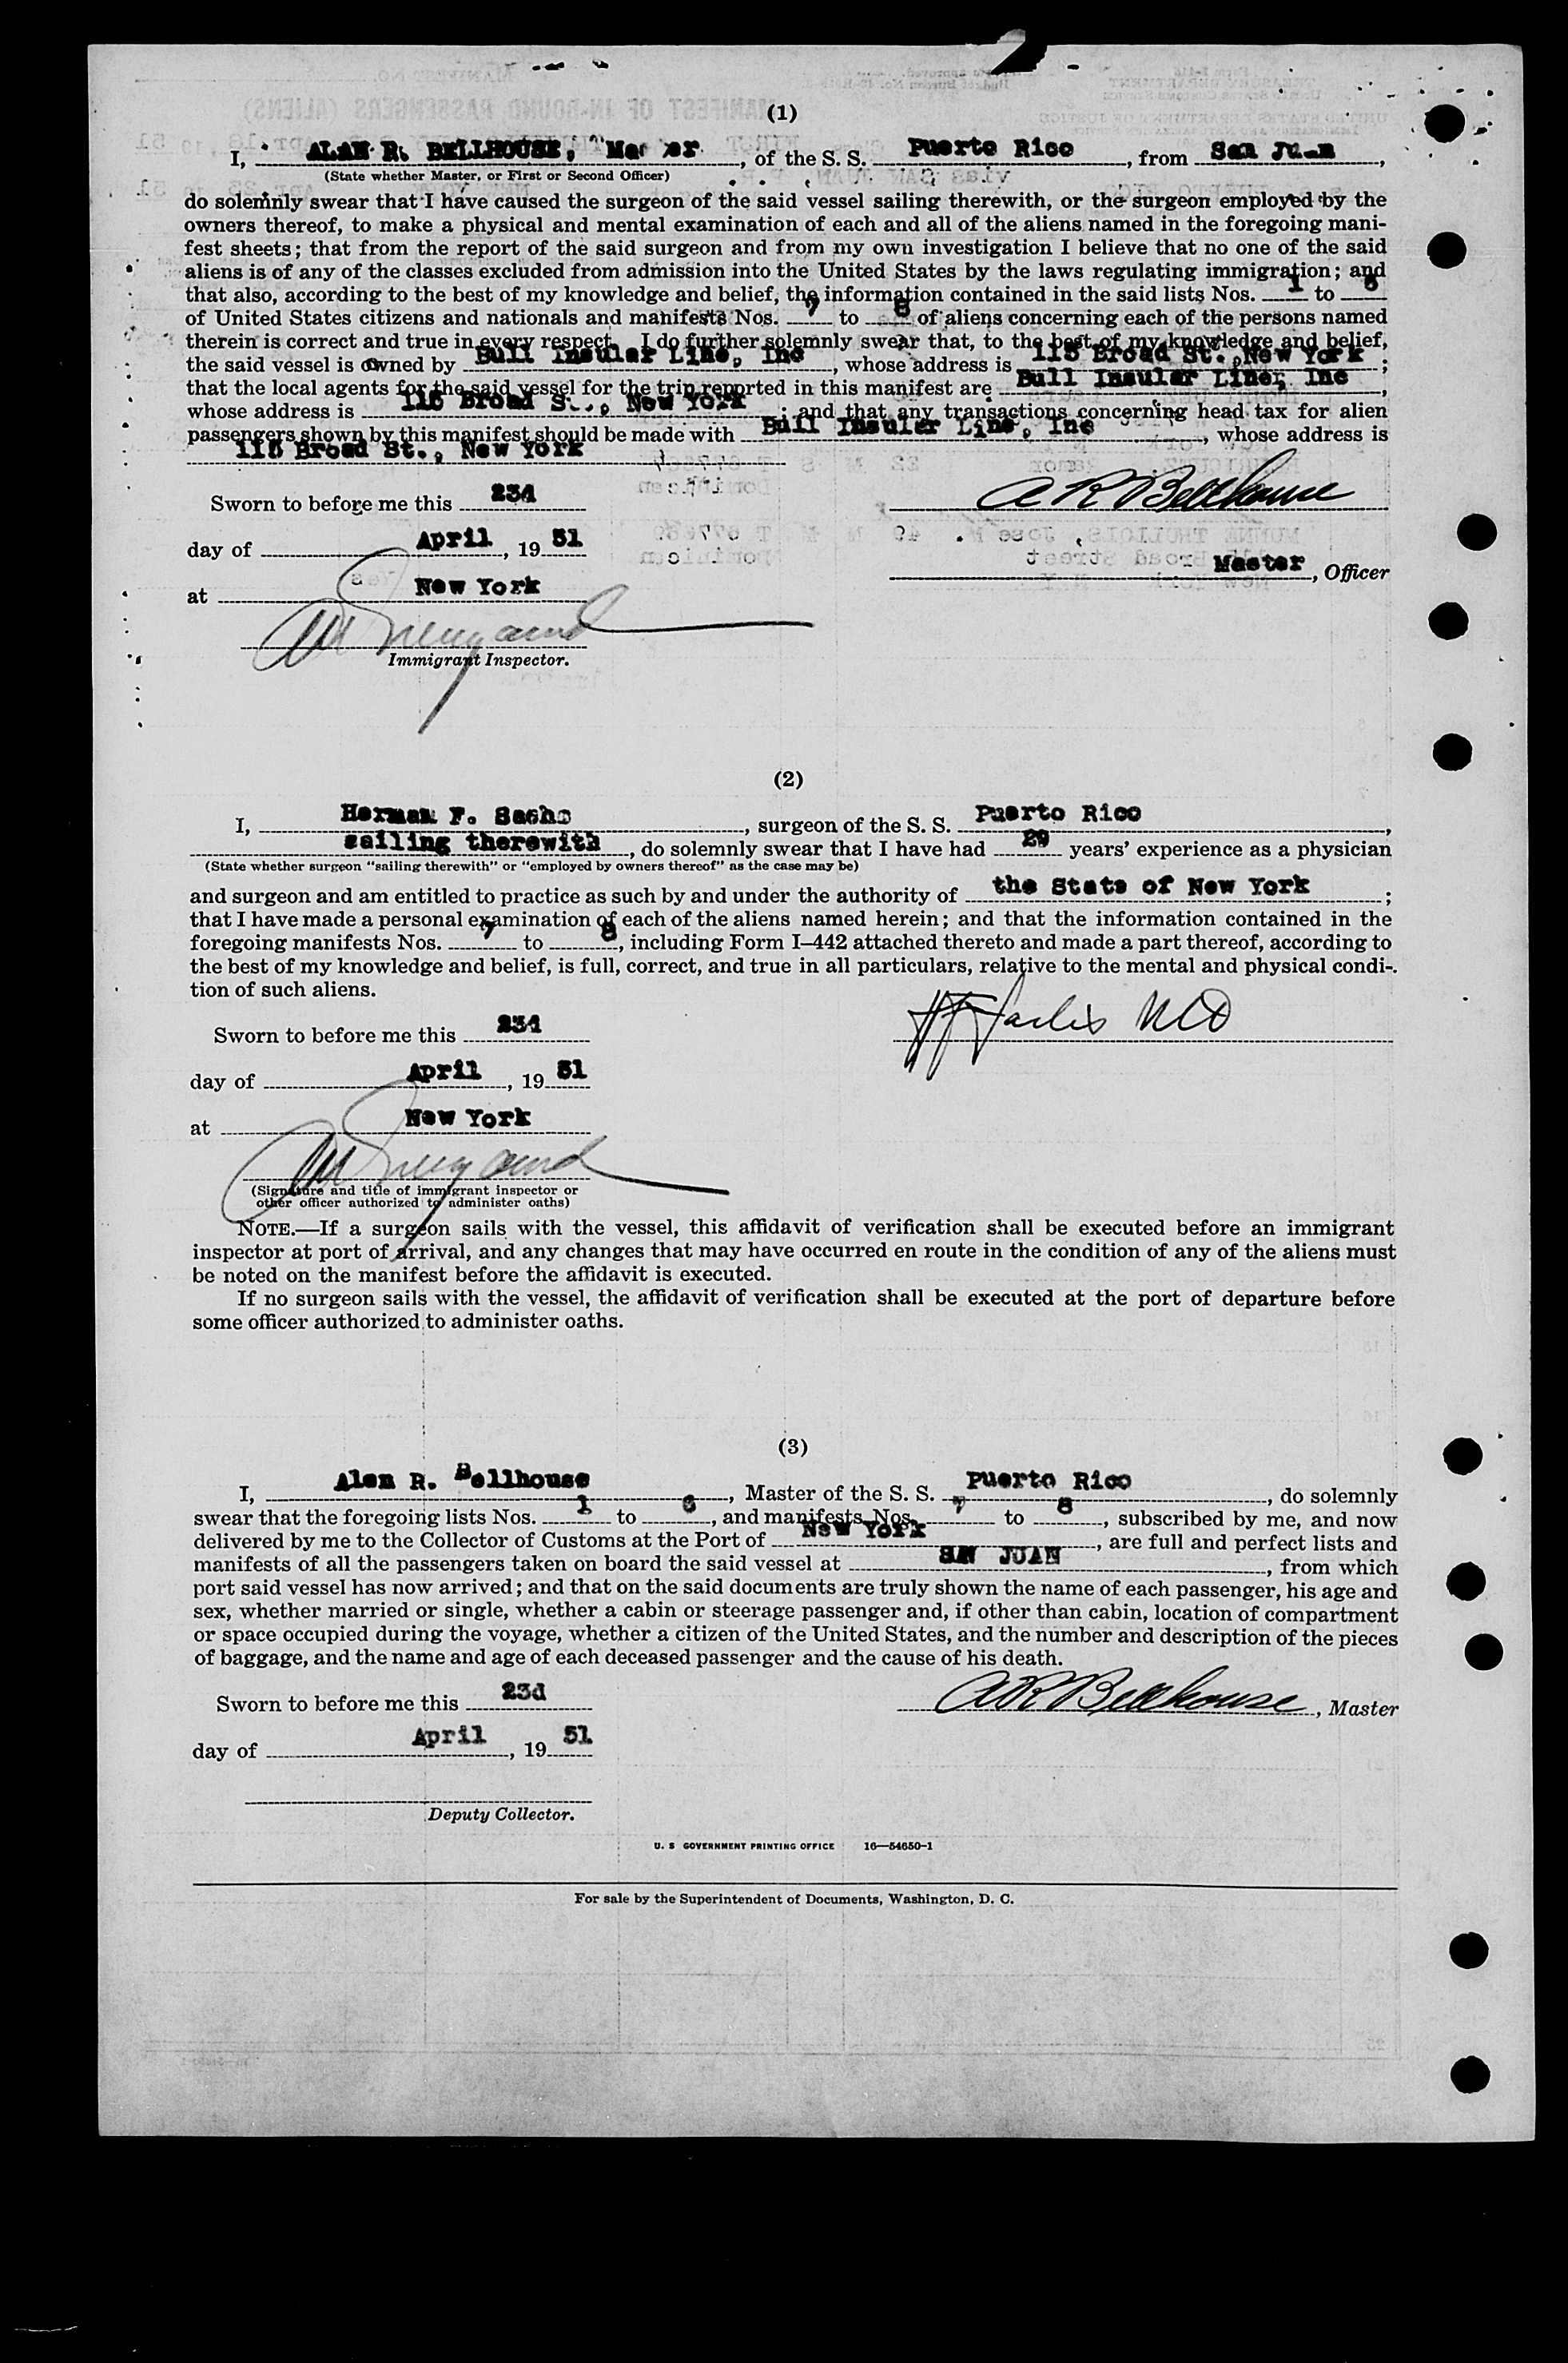 (1)
I, ALAN R. BELLHOUSE, Master, of the S. S. Puerto Rico, from San Juan,
(State whether Master, or First or Second Officer)
do solemnly swear that I have caused the surgeon of the said vessel sailing therewith, or the surgeon employed by the
owners thereof, to make a physical and mental examination of each and all of the aliens named in the foregoing mani-
fest sheets; that from the report of the said surgeon and from my own investigation I believe that no one of the said
aliens is of any of the classes excluded from admission into the United States by the laws regulating immigration; and
that also, according to the best of my knowledge and belief, the information contained in the said lists Nos. 1 to 6
of United States citizens and nationals and manifests Nos. 7 to 8 of aliens concerning each of the persons named
therein is correct and true in every respect. I do further solemnly swear that, to the best of my knowledge and belief,
the said vessel is owned by Bull Insular Line, Inc, whose address is 115 Broad St., New York;
that the local agents for the said vessel for the trip reported in this manifest are Bull Insular Line, Inc,
whose address is 115 Broad St., New York; and that any transactions concerning head tax for alien
passengers shown by this manifest should be made with Bull Insular Line, Inc, whose address is
115 Broad St., New York
Sworn to before me this 23d
A R Bellhouse
day of April, 19 51
Master, Officer
at New York
Immigrant Inspector.
(2)
I, Herman F. Sachs, surgeon of the S. S. Puerto Rico,
sailing therewith, do solemnly swear that I have had 29 years' experience as a physician
(State whether surgeon "sailing therewith" or "employed by owners thereof" as the case may be)
and surgeon and am entitled to practice as such by and under the authority of the State of New York;
that I have made a personal examination of each of the aliens named herein; and that the information contained in the
foregoing manifests Nos. 7 to 8, including Form I–442 attached thereto and made a part thereof, according to
the best of my knowledge and belief, is full, correct, and true in all particulars, relative to the mental and physical condi-
tion of such aliens.
Sworn to before me this 23d
HF Sachs MD
day of April, 19 51
at New York
(Signature and title of immigrant inspector or
other officer authorized to administer oaths)
NOTE.—If a surgeon sails with the vessel, this affidavit of verification shall be executed before an immigrant
inspector at port of arrival, and any changes that may have occurred en route in the condition of any of the aliens must
be noted on the manifest before the affidavit is executed.
If no surgeon sails with the vessel, the affidavit of verification shall be executed at the port of departure before
some officer authorized to administer oaths.
(3)
I, Alan R. Bellhouse, Master of the S. S. Puerto Rico, do solemnly
swear that the foregoing lists Nos. 1 to 6, and manifests Nos. 7 to 8, subscribed by me, and now
delivered by me to the Collector of Customs at the Port of New York, are full and perfect lists and
manifests of all the passengers taken on board the said vessel at SAN JUAN, from which
port said vessel has now arrived; and that on the said documents are truly shown the name of each passenger, his age and
sex, whether married or single, whether a cabin or steerage passenger and, if other than cabin, location of compartment
or space occupied during the voyage, whether a citizen of the United States, and the number and description of the pieces
of baggage, and the name and age of each deceased passenger and the cause of his death.
Sworn to before me this 23d
A R Bellhouse, Master
day of April, 19 51
Deputy Collector.
U. S GOVERNMENT PRINTING OFFICE 16—54650-1
For sale by the Superintendent of Documents, Washington, D. C.